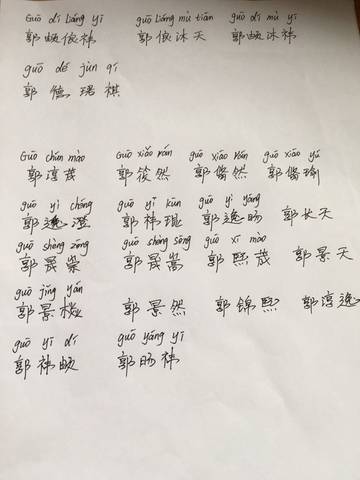 Guō dí liáng yī guō liáng mù tiān guō dí mù yī
郭頔俍祎 郭俍沐天 郭頔沐祎
guō dé jùn qí
郭德珺祺
Guō chún mào Guō xiǎo rán guō xiāo rán guō xiāo yú
郭淳茂 郭筱然 郭翛然 郭翛瑜
guō yì chéng guō yī kūn guō yì yáng
郭逸澄 郭祎琨 郭逸旸 郭长天
guō shèng zōng guō shèng sōng guō xī mào
郭晟崇 郭晟嵩 郭熙茂 郭景天
guō jǐng yán
郭景棪 郭景然 郭锦熙 郭淳逸
guō yī dí guō yáng yī
郭祎頔 郭旸祎